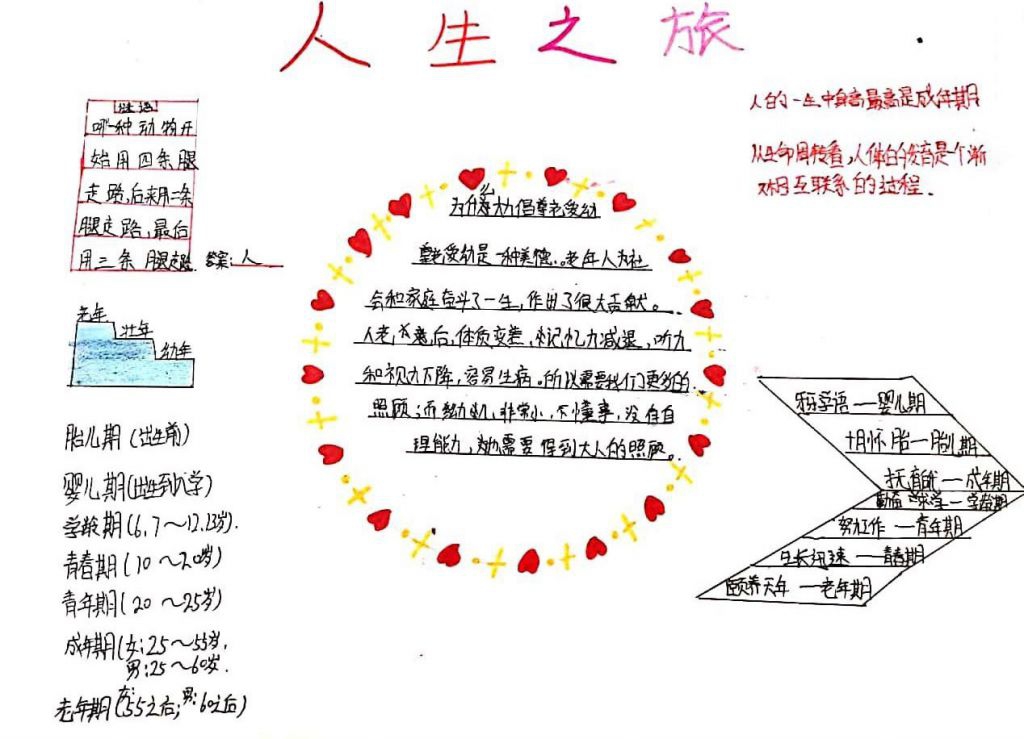 人生之旅
谜语
哪一种动物开
始用四条腿
走路,后来用二条
腿走路,最后
用三条腿走路.
答案:人
老年
壮年
幼年
胎儿期(出生前)
婴儿期(出生到入学)
学龄期(6.7~12.13岁).
青春期(10~20岁)
青年期(20~25岁)
成年期(女:25~55岁.
男:25~60岁.
老年期(女:55之后;男:60之后)
为什么要大力倡尊老爱幼
尊老爱幼是一种美德.。老年人为社
会和家庭奋斗了一生,作出了很大贡献。
人老,后,体质变差,记忆力减退,听力
和视力下降,容易生病.所以需要我们更多的
照顾;而幼儿,非常小,不懂事,没有自
理能力,需要得到大人的照顾。
人的一生中身高最高是成年期
从生命周转看,人体的发育是一个渐
相互联系的过程.
学语—婴儿期
十月怀胎—胎儿期
抚育—成年期
学—学龄期
努力工作—青年期
生长迅速—青春期
颐养天年—老年期